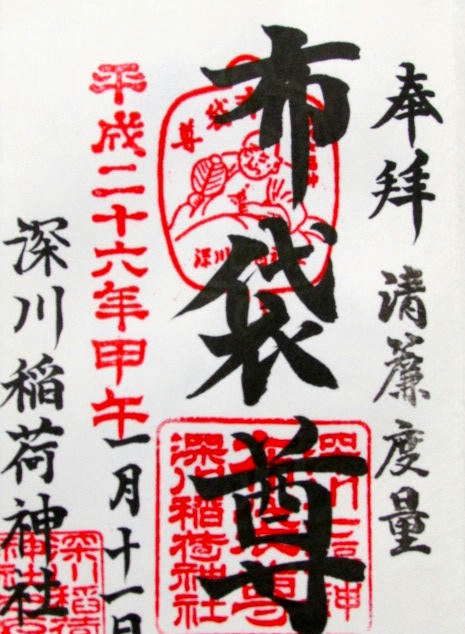 奉拝
清簾度量
布袋尊
平成二十六年甲午
一月十一日
深川稲荷神社
尊
袋
深川
深川稲荷神社